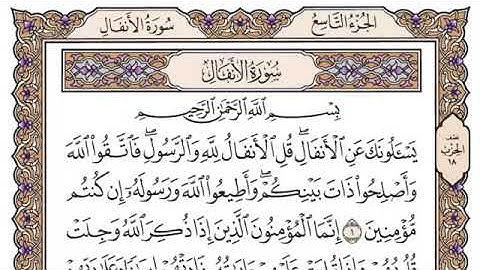 سُورَةُ الأَنفَالِ
الجُزْءُ التَّاسِعُ
سُورَةُ الأَنفَالِ
بِسْمِ اللَّهِ الرَّحْمَٰنِ الرَّحِيمِ
يَسْـَٔلُونَكَ عَنِ ٱلْأَنفَالِۖ قُلِ ٱلْأَنفَالُ لِلَّهِ وَٱلرَّسُولِۖ فَٱتَّقُوا۟ ٱللَّهَ
وَأَصْلِحُوا۟ ذَاتَ بَيْنِكُمْۖ وَأَطِيعُوا۟ ٱللَّهَ وَرَسُولَهُۥٓ إِن كُنتُم
مُّؤْمِنِينَ ١ إِنَّمَا ٱلْمُؤْمِنُونَ ٱلَّذِينَ إِذَا ذُكِرَ ٱللَّهُ وَجِلَتْ
نصف
الحزب
١٨